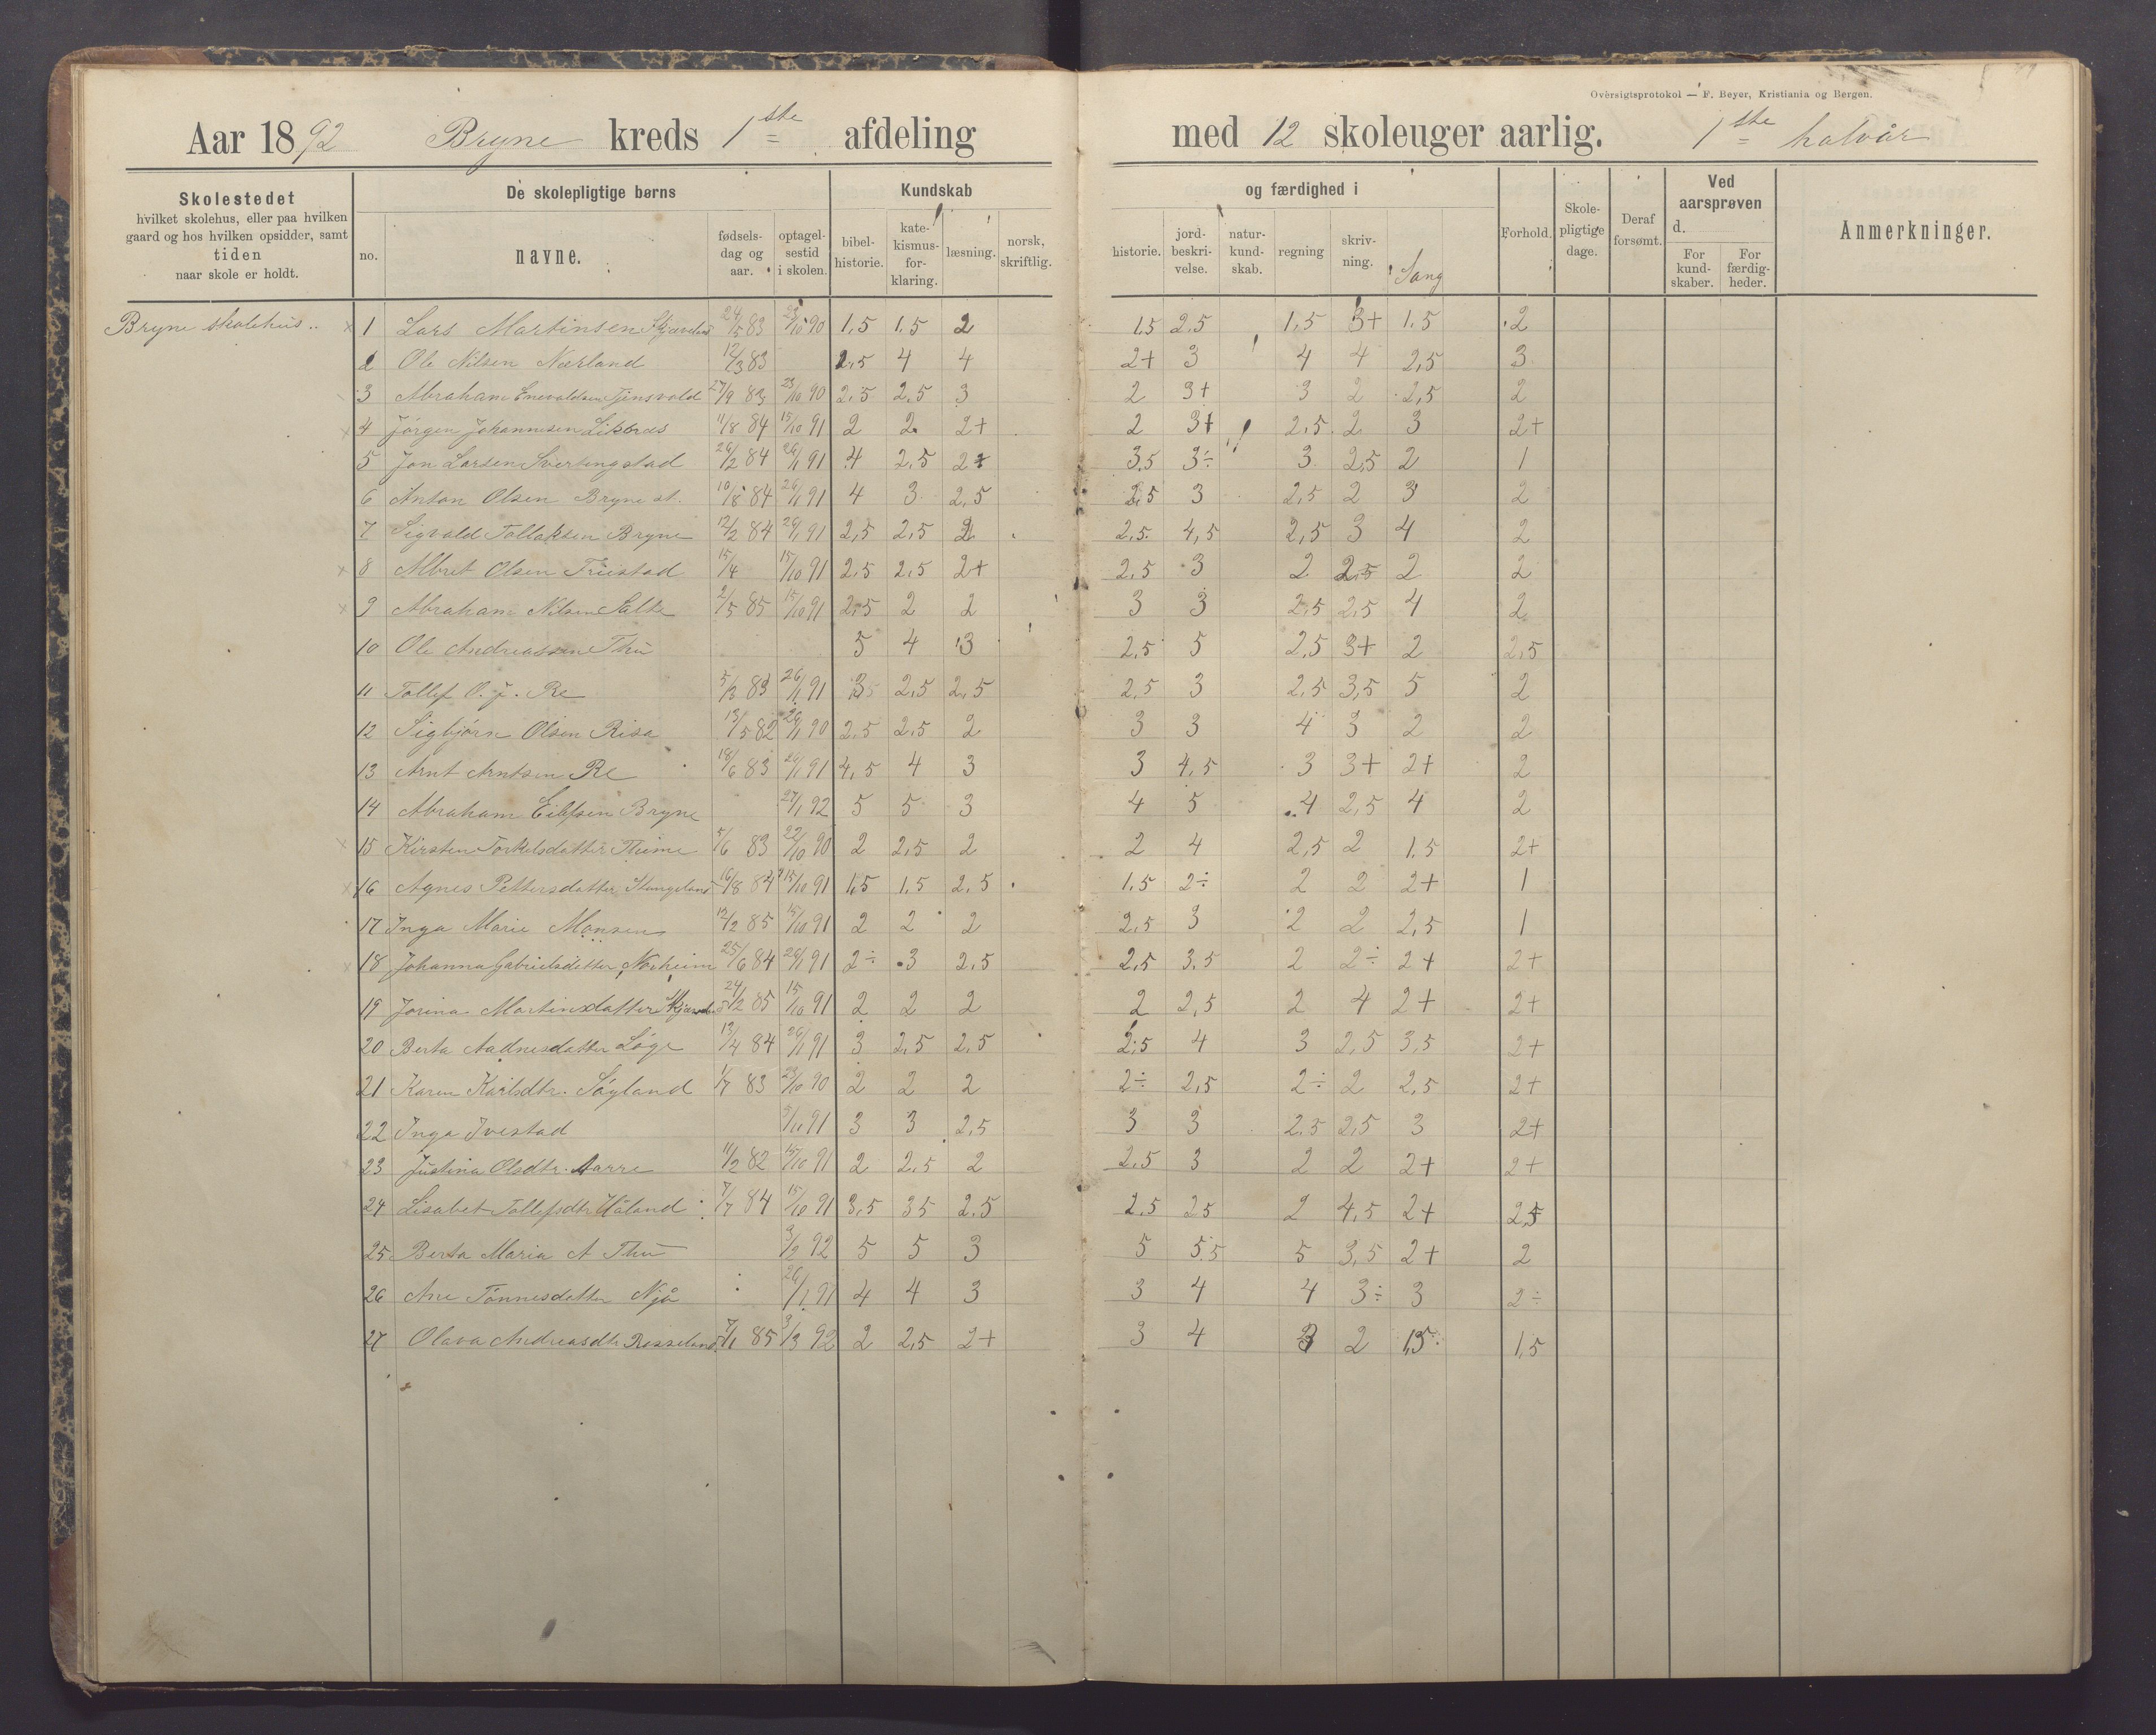 Oversigtsprotokol — F. Beyer, Kristiania og Bergen.
Aar 1892 Bryne kreds 1ste afdeling med 12 skoleuger aarlig. 1ste halvår
Skolestedet hvilket skolehus, eller paa hvilken gaard og hos hvilken opsidder, samt tiden naar skole er holdt.
De skolepligtige børns
no. navne. fødselsdag og aar. optagelsestid i skolen.
Kundskab og færdighed i
bibelhistorie. katekismusforklaring. læsning. norsk, skriftlig. historie. jordbeskrivelse. naturkundskab. regning skrivning. Sang
Forhold. Skolepligtige dage. Deraf forsømt.
Ved aarsprøven d. For kundskaber. For færdigheder.
Anmerkninger.
Bryne skolehus..
1 Lars Martinsen 24/5 83 23/10 90 1,5 1.5 2 1.5 2,5 1,5 3+ 1.5 2
2 Ole Nilsen Nærland 12/3 83 2,5 4 4 2+ 3 4 4 2,5 3
3 Abraham Enevaldsen Tjinsvold 27/9 83 23/10 90 2,5 2,5 3 2 3+ 3 2 2,5 2
4 Jørgen Johannesen 11/8 84 15/10 91 2 2 2+ 2 3+ 2,5 2 3 2+
5 Jon Larsen Svertingstad 26/2 84 26/1 91 4 2,5 2+ 3.5 3÷ 3 2,5 2 1
6 Anton Olsen Bryne st. 10/8 84 26/1 91 4 3 2,5 2,5 3 2,5 2 3 2
7 Sigvald Tollaksen Bryne 12/2 84 26/1 91 2,5 2,5 2 2,5 4,5 2,5 3 4 2
8 Albret Olsen Friestad 15/4 15/10 91 2,5 2,5 2+ 2.5 3 2 2,5 2 2
9 Abraham Nilsen Salte 2/5 85 15/10 91 2,5 2 2 3 3 2,5 2,5 4 2
10 Ole Andreassen Thu 5 4 3 2,5 5 2,5 3+ 2 2,5
11 Tollef O. J. Re 5/3 83 26/1 91 3 2,5 2,5 2,5 3 2,5 3,5 5 2
12 Sigbjørn Olsen Risa 13/5 82 26/1 90 2,5 2,5 2 3 3 4 3 2 2
13 Arnt Arntsen Re 18/6 83 26/1 91 4,5 4 3 3 4,5 3 3+ 2+ 2
14 Abraham Eilefsen Bryne 27/1 92 5 5 3 4 5 4 2,5 4 2
15 Kirsten Torkelsdatter Thime 5/6 83 22/10 90 2 2,5 2 2 4 2,5 2 1.5 2+
16 Agnes Pettersdatter 16/8 84 15/10 91 1,5 1.5 2.5 1.5 2÷ 2 2 2+ 1
17 Inga Marie Monsen 12/2 85 15/10 91 2 2 2 2,5 3 2 2 2,5 1
18 Johanna Gabrielsdatter Norheim 25/6 84 26/1 91 2÷ 3 2,5 2,5 3.5 2 2÷ 2+ 2+
19 Jorina Martinsdatter 24/2 85 15/10 91 2 2 2 2 2,5 2 4 2+ 2+
20 Berta Aadnesdatter Løge 13/4 84 26/1 91 3 2,5 2,5 2,5 4 3 2,5 3,5 2+
21 Karen Karlsdtr. Søyland 1/7 83 23/10 90 2 2 2 2÷ 2,5 2÷ 2 2,5 2+
22 Inga Ivestad 91 3 3 2,5 3 3 2.5 2,5 3 2+
23 Justina Olsdtr. Aarre 11/2 82 15/10 91 2 2,5 2 2.5 3 2 2 2+ 2+
24 Lisabet Tollefsdtr Håland 7/7 84 15/10 91 3,5 35 2.5 2.5 25 2 4,5 2+ 2,5
25 Berta Maria A Thu 3/2 92 5 5 3 5 5.5 5 3,5 2+ 2
26 Ane Tønnesdatter Njå 26/1 91 4 4 3 3 4 4 3÷ 3 2÷
27 Olava Andreasdtr Rosseland 7/1 85 3/3 92 2 2,5 2+ 3 4 3 2 1,5 1,5